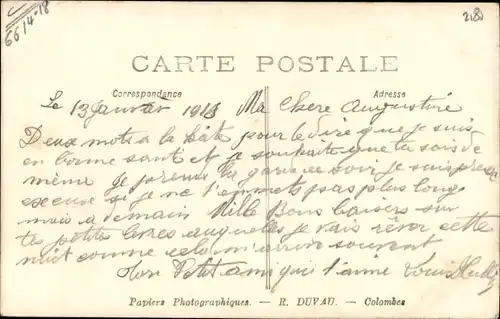 6614-18
218
CARTE POSTALE
Correspondance
Adresse
Le 13 Janvier 1918 Ma Chere Augustine
Deux mots a la hâte pour le dire que je suis
en bonne sant et je souhaite que tu sois de
même Je prend la garde ce soir je suis presse
excuse si je ne t'en mets pas plus long
mais a demain Mille Bons baisers sur
tes petites levres auquelles je vais rêver cette
nuit comme cela m'arrive souvent
Ton Petit ami qui t'aime Louis
Papiers Photographiques. — R. DUVAU. — Colombes